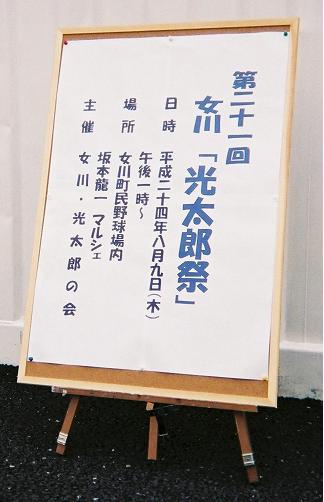 第二十一回
女川「光太郎祭」
日時 平成二十四年八月九日(木)
午後一時~
場所 女川町民野球場内
坂本龍一 マルシェ
主催 女川・光太郎の会